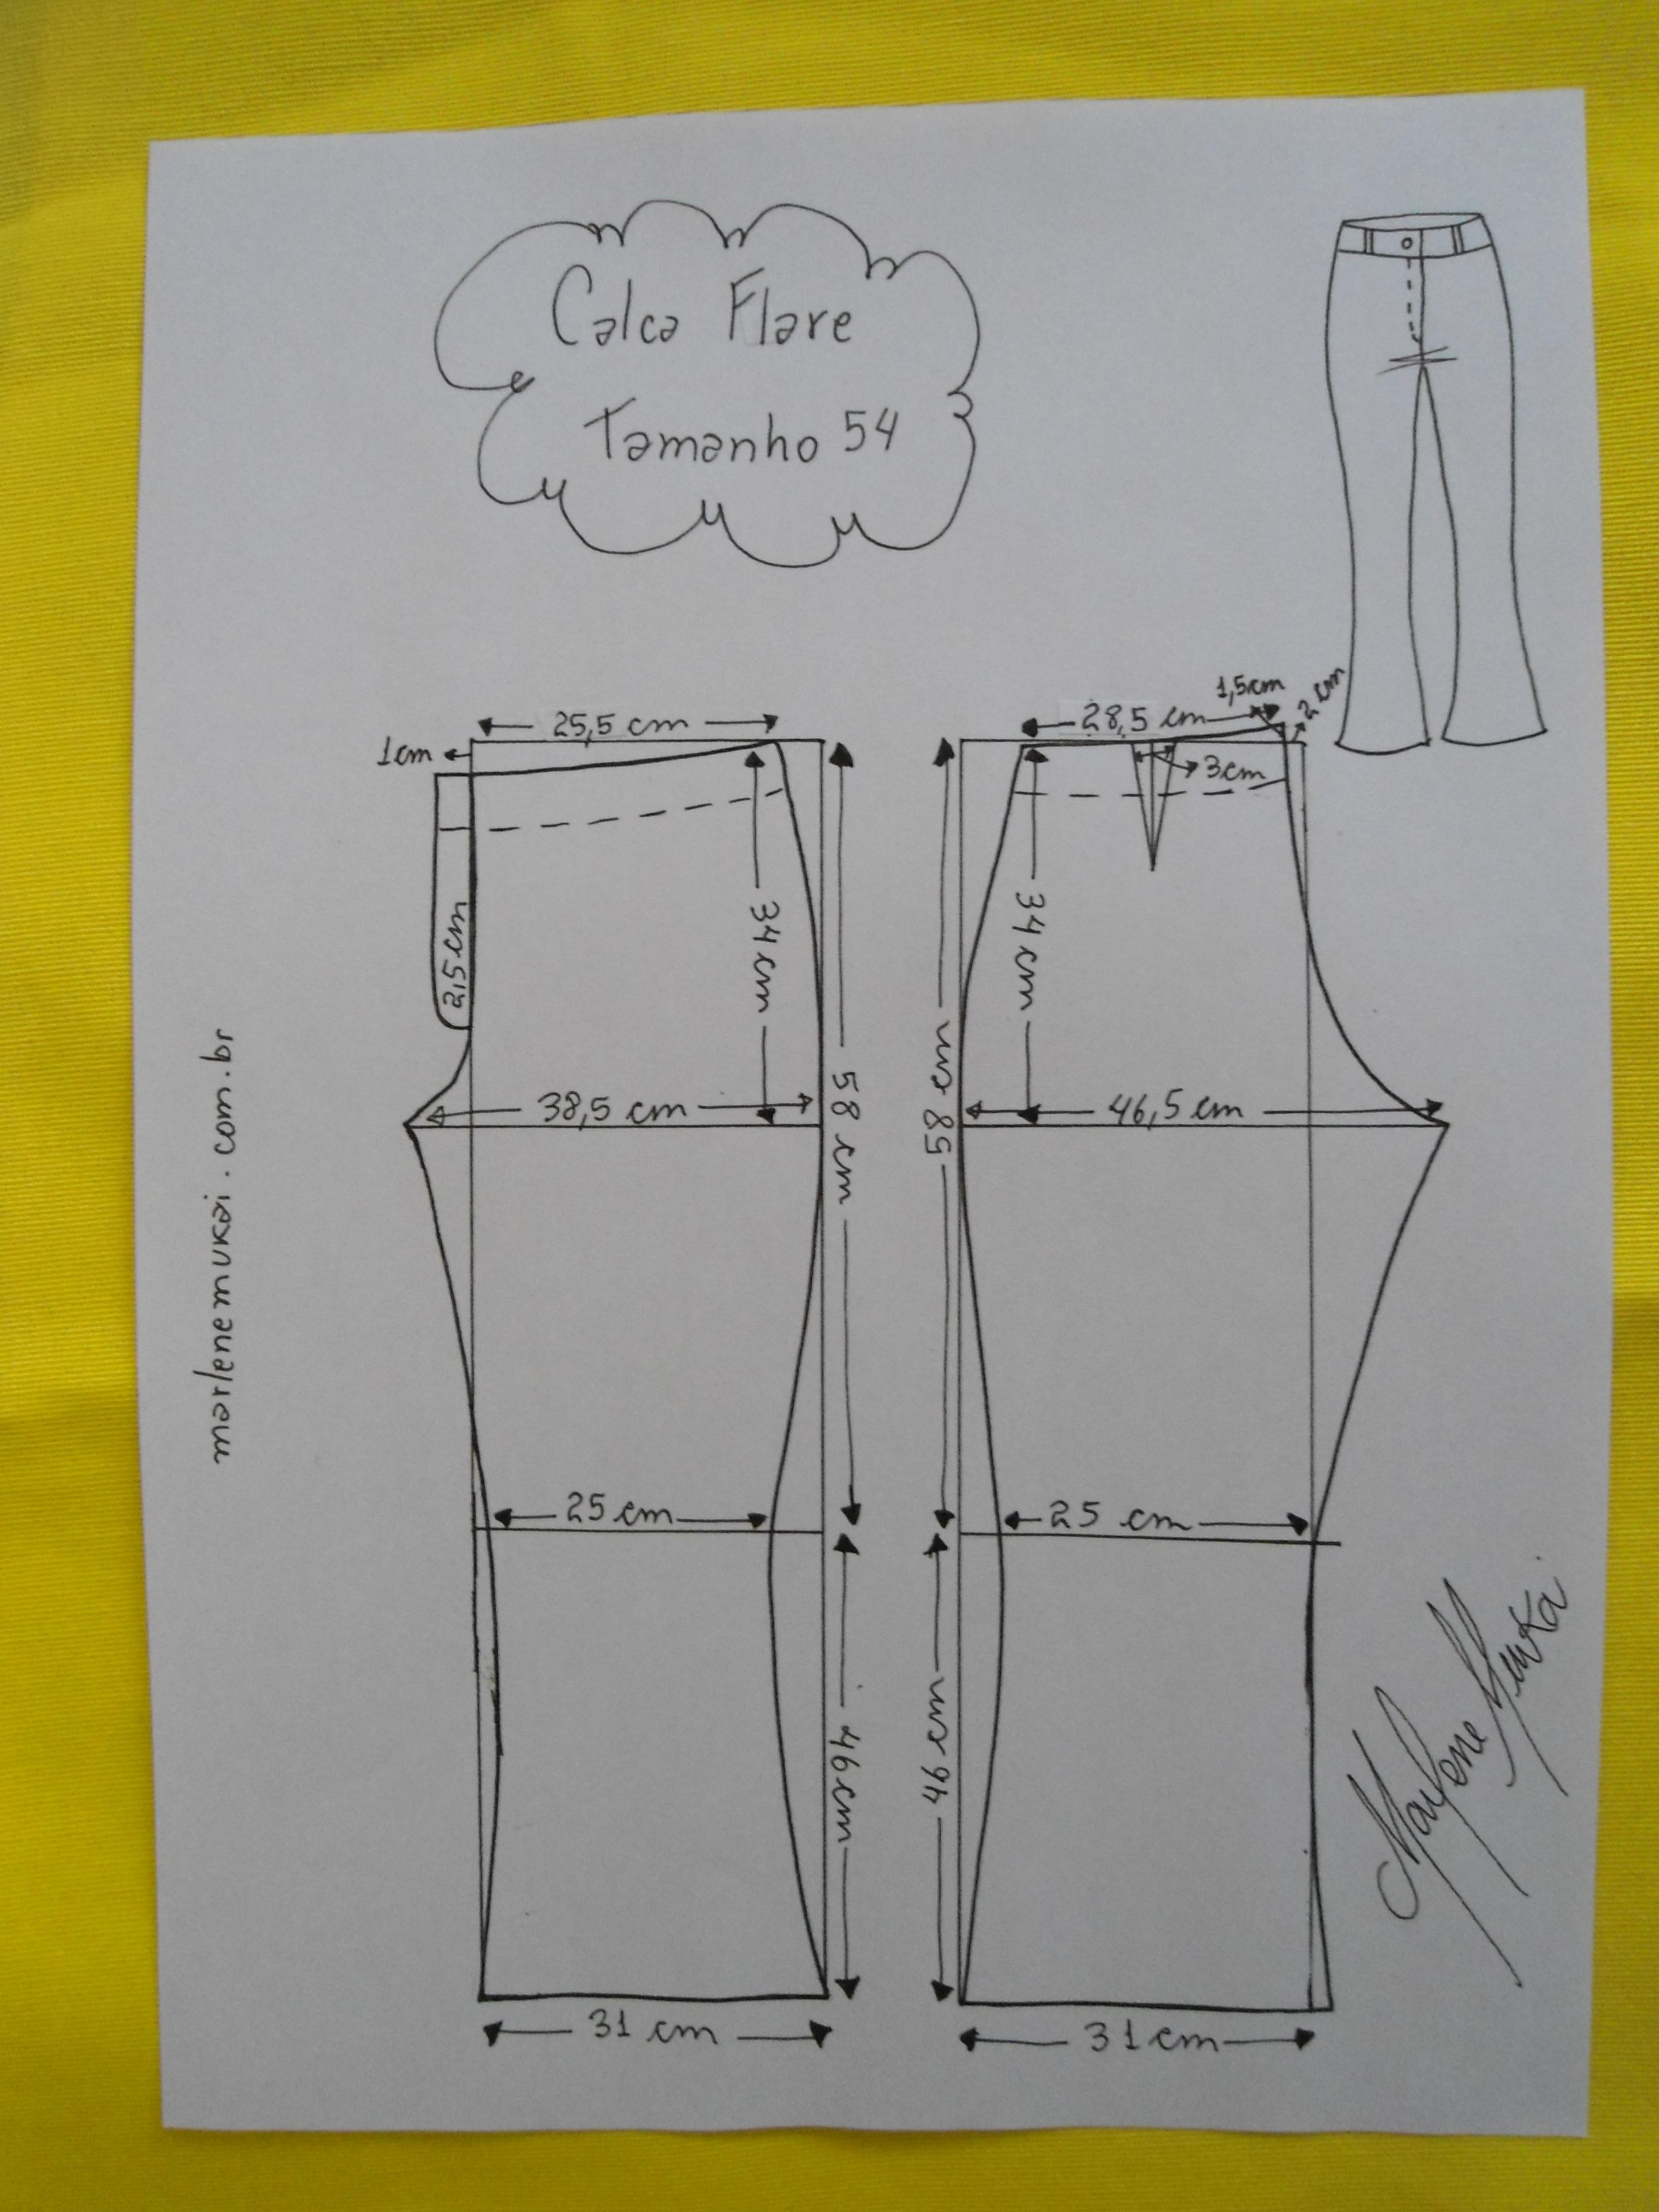 Calca Flare
Tamanho 54
25,5 cm
1cm
2,5cm
34 cm
38,5 cm
58 cm
25 cm
46cm
31 cm
28,5 cm
1,5cm
2 cm
3cm
34 cm
58 cm
46,5 cm
25 cm
46 cm
31cm
marlenemukai.com.br
Marlene Mukai